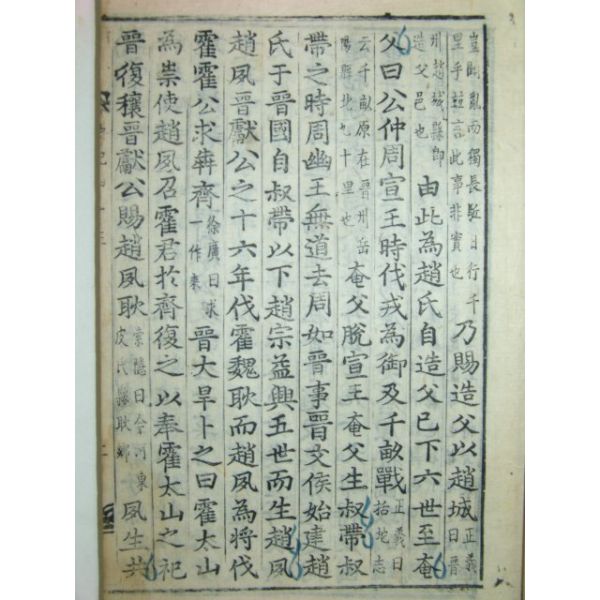 亂而獨長驅日行千里乎並言此事非實也乃賜造父以趙城正義曰晉
州趙城縣即造父邑也由此為趙氏自造父已下六世至奄
父曰公仲周宣王時伐戎為御及千畝戰正義曰括地志
云千畝原在晉州岳陽縣北九十里也奄父脫宣王奄父生叔帶叔
帶之時周幽王無道去周如晉事晉文侯始建趙
氏于晉國自叔帶以下趙宗益興五世而生趙夙
趙夙晉獻公之十六年伐霍魏耿而趙夙為將伐
霍霍公求犇齊徐廣曰求一作來晉大旱卜之曰霍太山
為祟使趙夙召霍君於齊復之以奉霍太山之祀
晉復穰晉獻公賜趙夙耿索隱曰今河東皮氏縣耿鄉夙生共